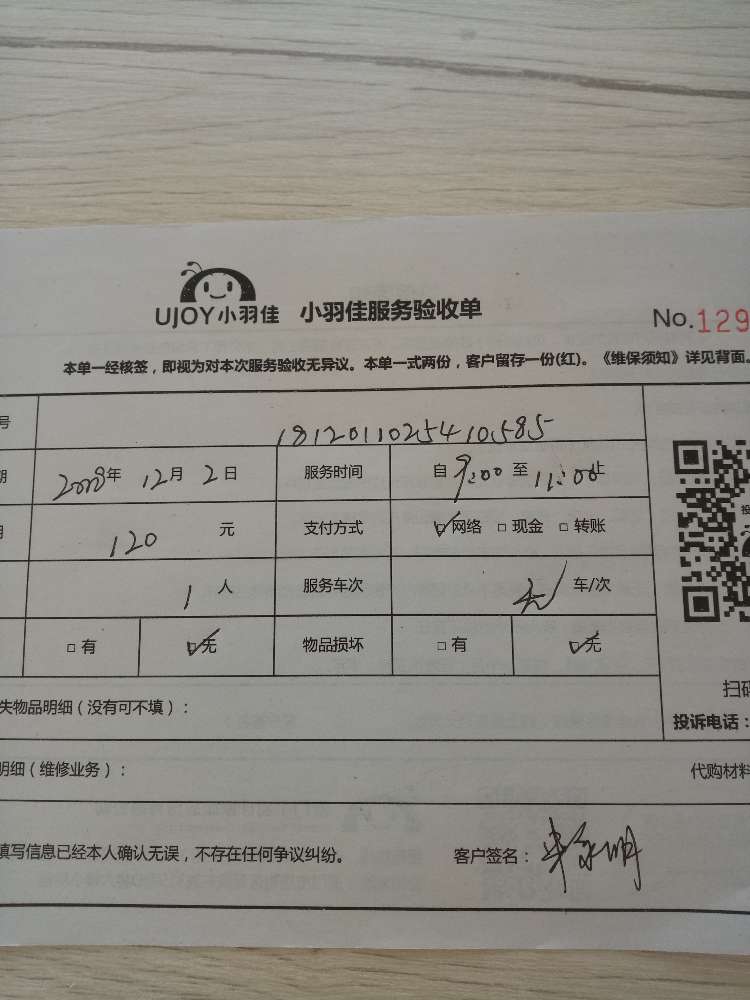 UJOY小羽佳 小羽佳服务验收单 No.129
本单一经核签，即视为对本次服务验收无异议。本单一式两份，客户留存一份(红)。《维保须知》详见背面。
号 181201102541 0585
期 2018年 12月 2日 服务时间 自 9:00 至 11:00 止
120 元 支付方式 ☑网络 □现金 □转账
1 人 服务车次 无 车/次
□有 ☑无 物品损坏 □有 ☑无
失物品明细（没有可不填）： 扫码
投诉电话：
明细（维修业务）： 代购材料
填写信息已经本人确认无误，不存在任何争议纠纷。 客户签名：